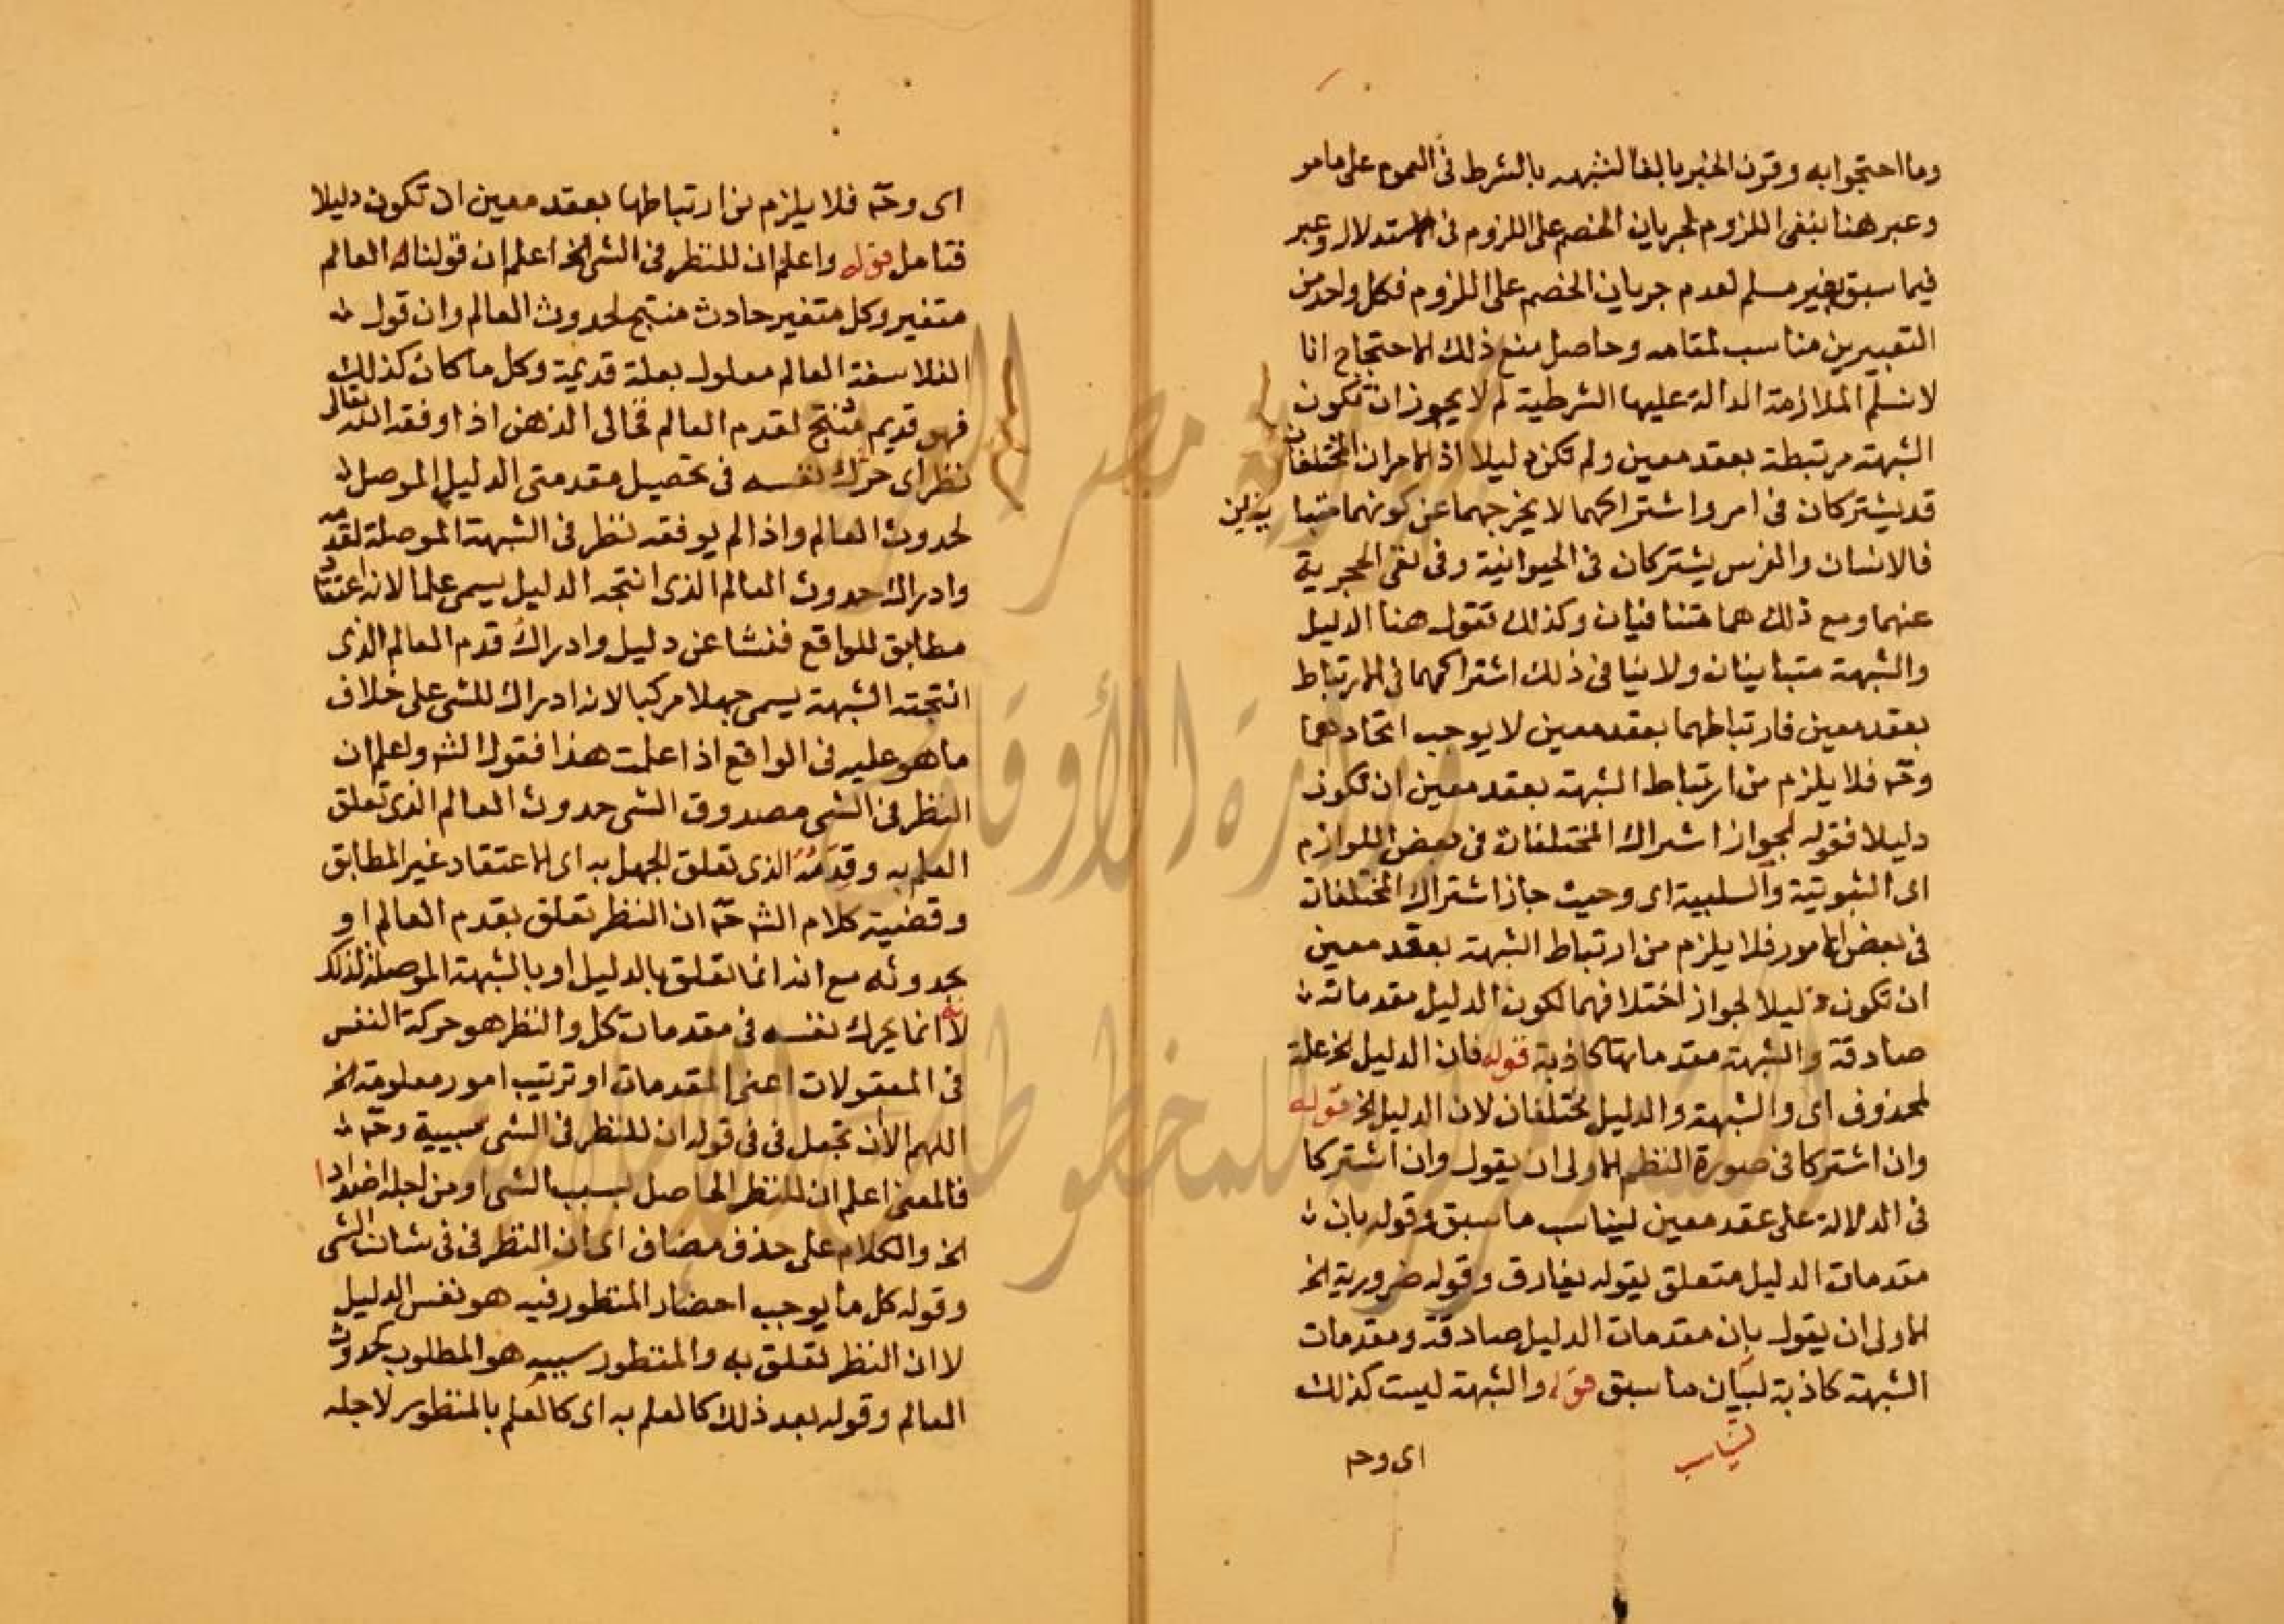 وما احتجوا به وقرن الخبر بالفا لشبهه بالشرط فى العموم على ما مر
وعبر هنا بنفى اللزوم لجريان الخصم على اللزوم فى الاستدلال وعبر
فيما سبق بغير مسلم لعدم جريان الخصم على اللزوم فكل واحد من
التعبيرين مناسب لمقامه وحاصل منع ذلك الاحتجاج انا
لا نسلم الملازمة الدالة عليها الشرطية لم لا يجوز ان تكون
الشبهة مرتبطة بعقد معين ولم تكن دليلا اذ الامران المختلفان
قد يشتركان فى امر واشتراكهما لا يخرجهما عن كونهما متباينين
فالانسان والفرس يشتركان فى الحيوانية وفى نفى الحجرية
عنهما ومع ذلك هما متنافيان وكذلك تقول هنا الدليل
والشبهة متباينان ولا ينافى ذلك اشتراكهما فى الارتباط
بعقد معين فارتباطهما بعقد معين لا يوجب اتحادهما
وحـ فلا يلزم من ارتباط الشبهة بعقد معين ان تكون
دليلا فقوله لجواز اشتراك المختلفات فى بعض اللوازم
اى الثبوتية والسلبية اى وحيث جاز اشتراك المختلفات
فى بعض الامور فلا يلزم من ارتباط الشبهة بعقد معين
ان تكون دليلا لجواز اختلافهما لكون الدليل مقدماته
صادقة والشبهة مقدماتها كاذبة قوله فان الدليل الخ علة
لمحذوف اى والشبهة والدليل مختلفان لان الدليل الخ قوله
وان اشتركا فى صورة النظم الاولى ان يقول وان اشتركا
فى الدلالة على عقد معين ليناسب ما سبق وقوله بان
مقدمات الدليل متعلق بقوله يفارق وقوله ضرورية الخ
الاولى ان يقول بان مقدمات الدليل صادقة ومقدمات
الشبهة كاذبة لبيان ما سبق قوله والشبهة ليست كذلك
اى وحـ
اى وحـ فلا يلزم من ارتباطها بعقد معين ان تكون دليلا
فتامل قوله واعلم ان للنظر فى الشى الخ اعلم ان قولنا العالم
متغير وكل متغير حادث منتج لحدوث العالم وان قول
الفلاسفة العالم معلول بعلة قديمة وكل ما كان كذلك
فهو قديم منتج لقدم العالم فخالى الذهن اذا وفقه الله تعالى
نظر اى حرك نفسه فى تحصيل مقدمتى الدليل الموصل
لحدوث العالم واذا لم يوفقه نظر فى الشبهة الموصلة لقدمه
وادراك حدوث العالم الذى انتجه الدليل يسمى علما لانه اعتقاد
مطابق للواقع فنشا عن دليل وادراك قدم العالم الذى
انتجته الشبهة يسمى جهلا مركبا لانه ادراك للشى على خلاف
ما هو عليه فى الواقع اذا علمت هذا فقول الشـ واعلم ان
النظر فى الشى مصدوق الشى حدوث العالم الذى تعلق
العلم به وقدمه الذى تعلق الجهل به اى الاعتقاد غير المطابق
وقضية كلام الشـ حـ ان النظر تعلق بقدم العالم او
بحدوثه مع انه انما تعلق بالدليل او بالشبهة الموصلة لذلك
لانه انما يحرك نفسه فى مقدمات كل والنظر هو حركة النفس
فى المعقولات اعنى المقدمات او ترتيب امور معلومة الخ
اللهم الا ان تجعل فى فى قوله ان للنظر فى الشى سببية وحـ
فالمعنى اعلم ان للنظر الحاصل بسبب الشى او من اجله اضدادا
الخ والكلام على حذف مضاف اى ان النظر فى فى شان الشى
وقوله كل ما يوجب احضار المنظور فيه هو نفس الدليل
لا ان النظر تعلق به والمنظور سببه هو المطلوب كحدوث
العالم وقوله بعد ذلك كالعلم به اى كالعلم بالمنظور لاجله